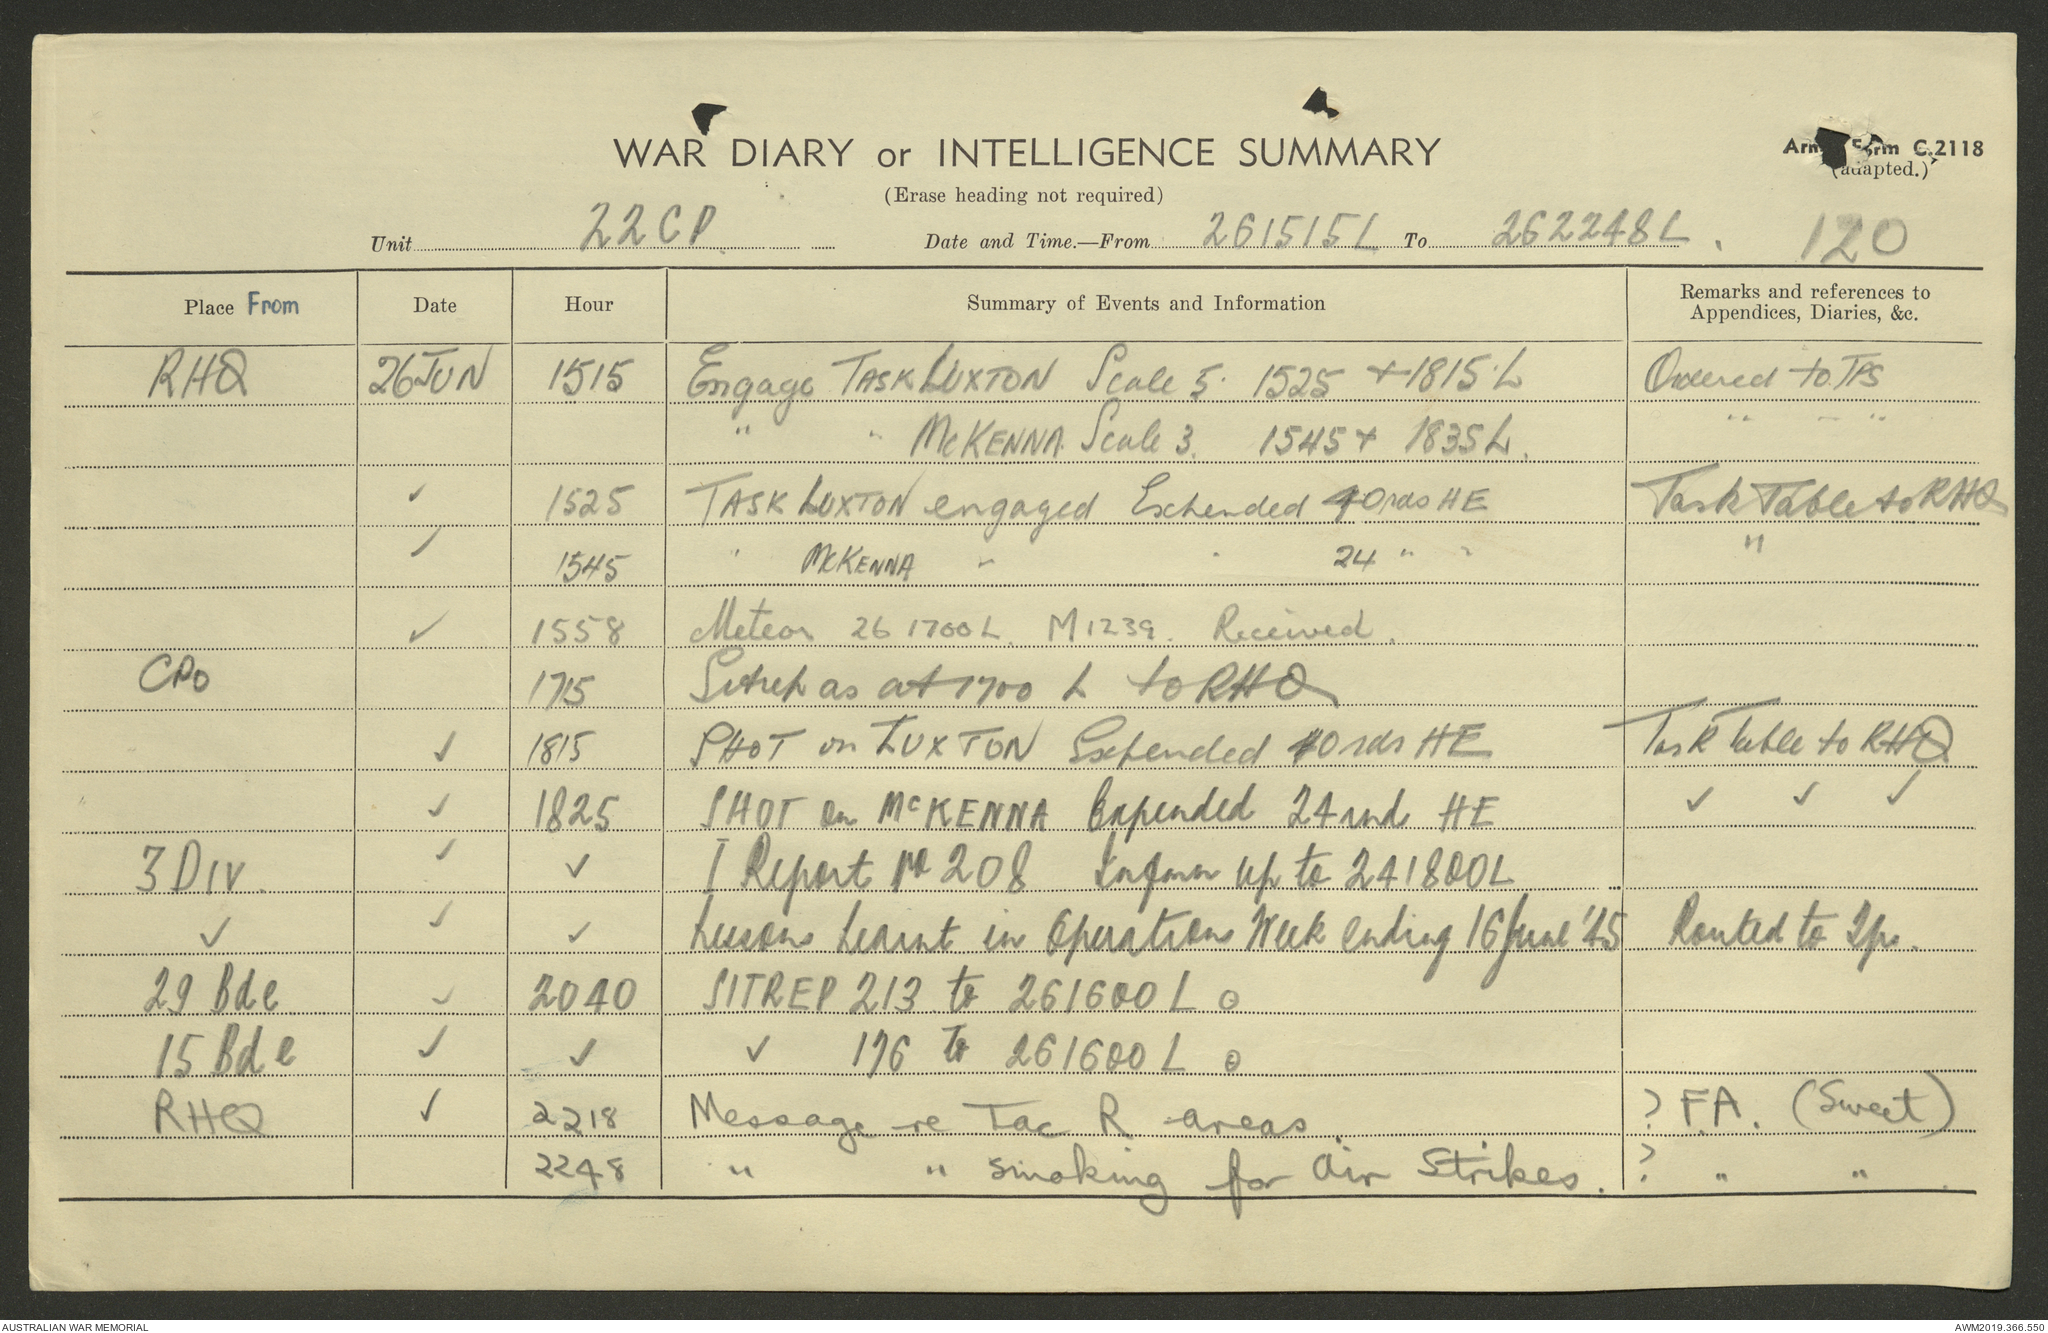 WAR DIARY or INTELLIGENCE SUMMARY
Army Form C.2118
(Erase heading not required)
(adapted.)
Unit 22 CP. Date and Time.—From 261515L To 262248L. 120
Place From Date Hour Summary of Events and Information Remarks and references to
Appendices, Diaries, &c.
RHQ 26 JUN 1515 Engage TASK LUXTON Scale 5. 1525 + 1815.L Ordered to TPS
" " McKENNA Scale 3. 1545 + 1835L. " - "
✓ 1525 TASK LUXTON engaged Expended 40 rds HE Task Table to RHQ
✓ 1545 " McKENNA " " 24 " " "
✓ 1558 Meteor 26 1700L. M1239. Received.
CPO 1715 Sitrep as at 1700 L to RHQ
✓ 1815 SHOT on LUXTON Expended 40 rds HE Task Table to RHQ
✓ 1825 SHOT on McKENNA Expended 24 rnds HE ✓ ✓ ✓
3 DIV. ✓ ✓ I Report No 208 Inform up to 241800L
✓ ✓ ✓ Lessons Learnt in Operations Week ending 16 June '45 Routed to Tps.
29 Bde ✓ 2040 SITREP 213 to 261600 L
15 Bde ✓ ✓ ✓ 176 to 261600 L
RHQ ✓ 2218 Message re Tac R areas ? F.A. (Sweet)
2248 " " smoking for air strikes. ? " "
AUSTRALIAN WAR MEMORIAL AWM2019.366.550